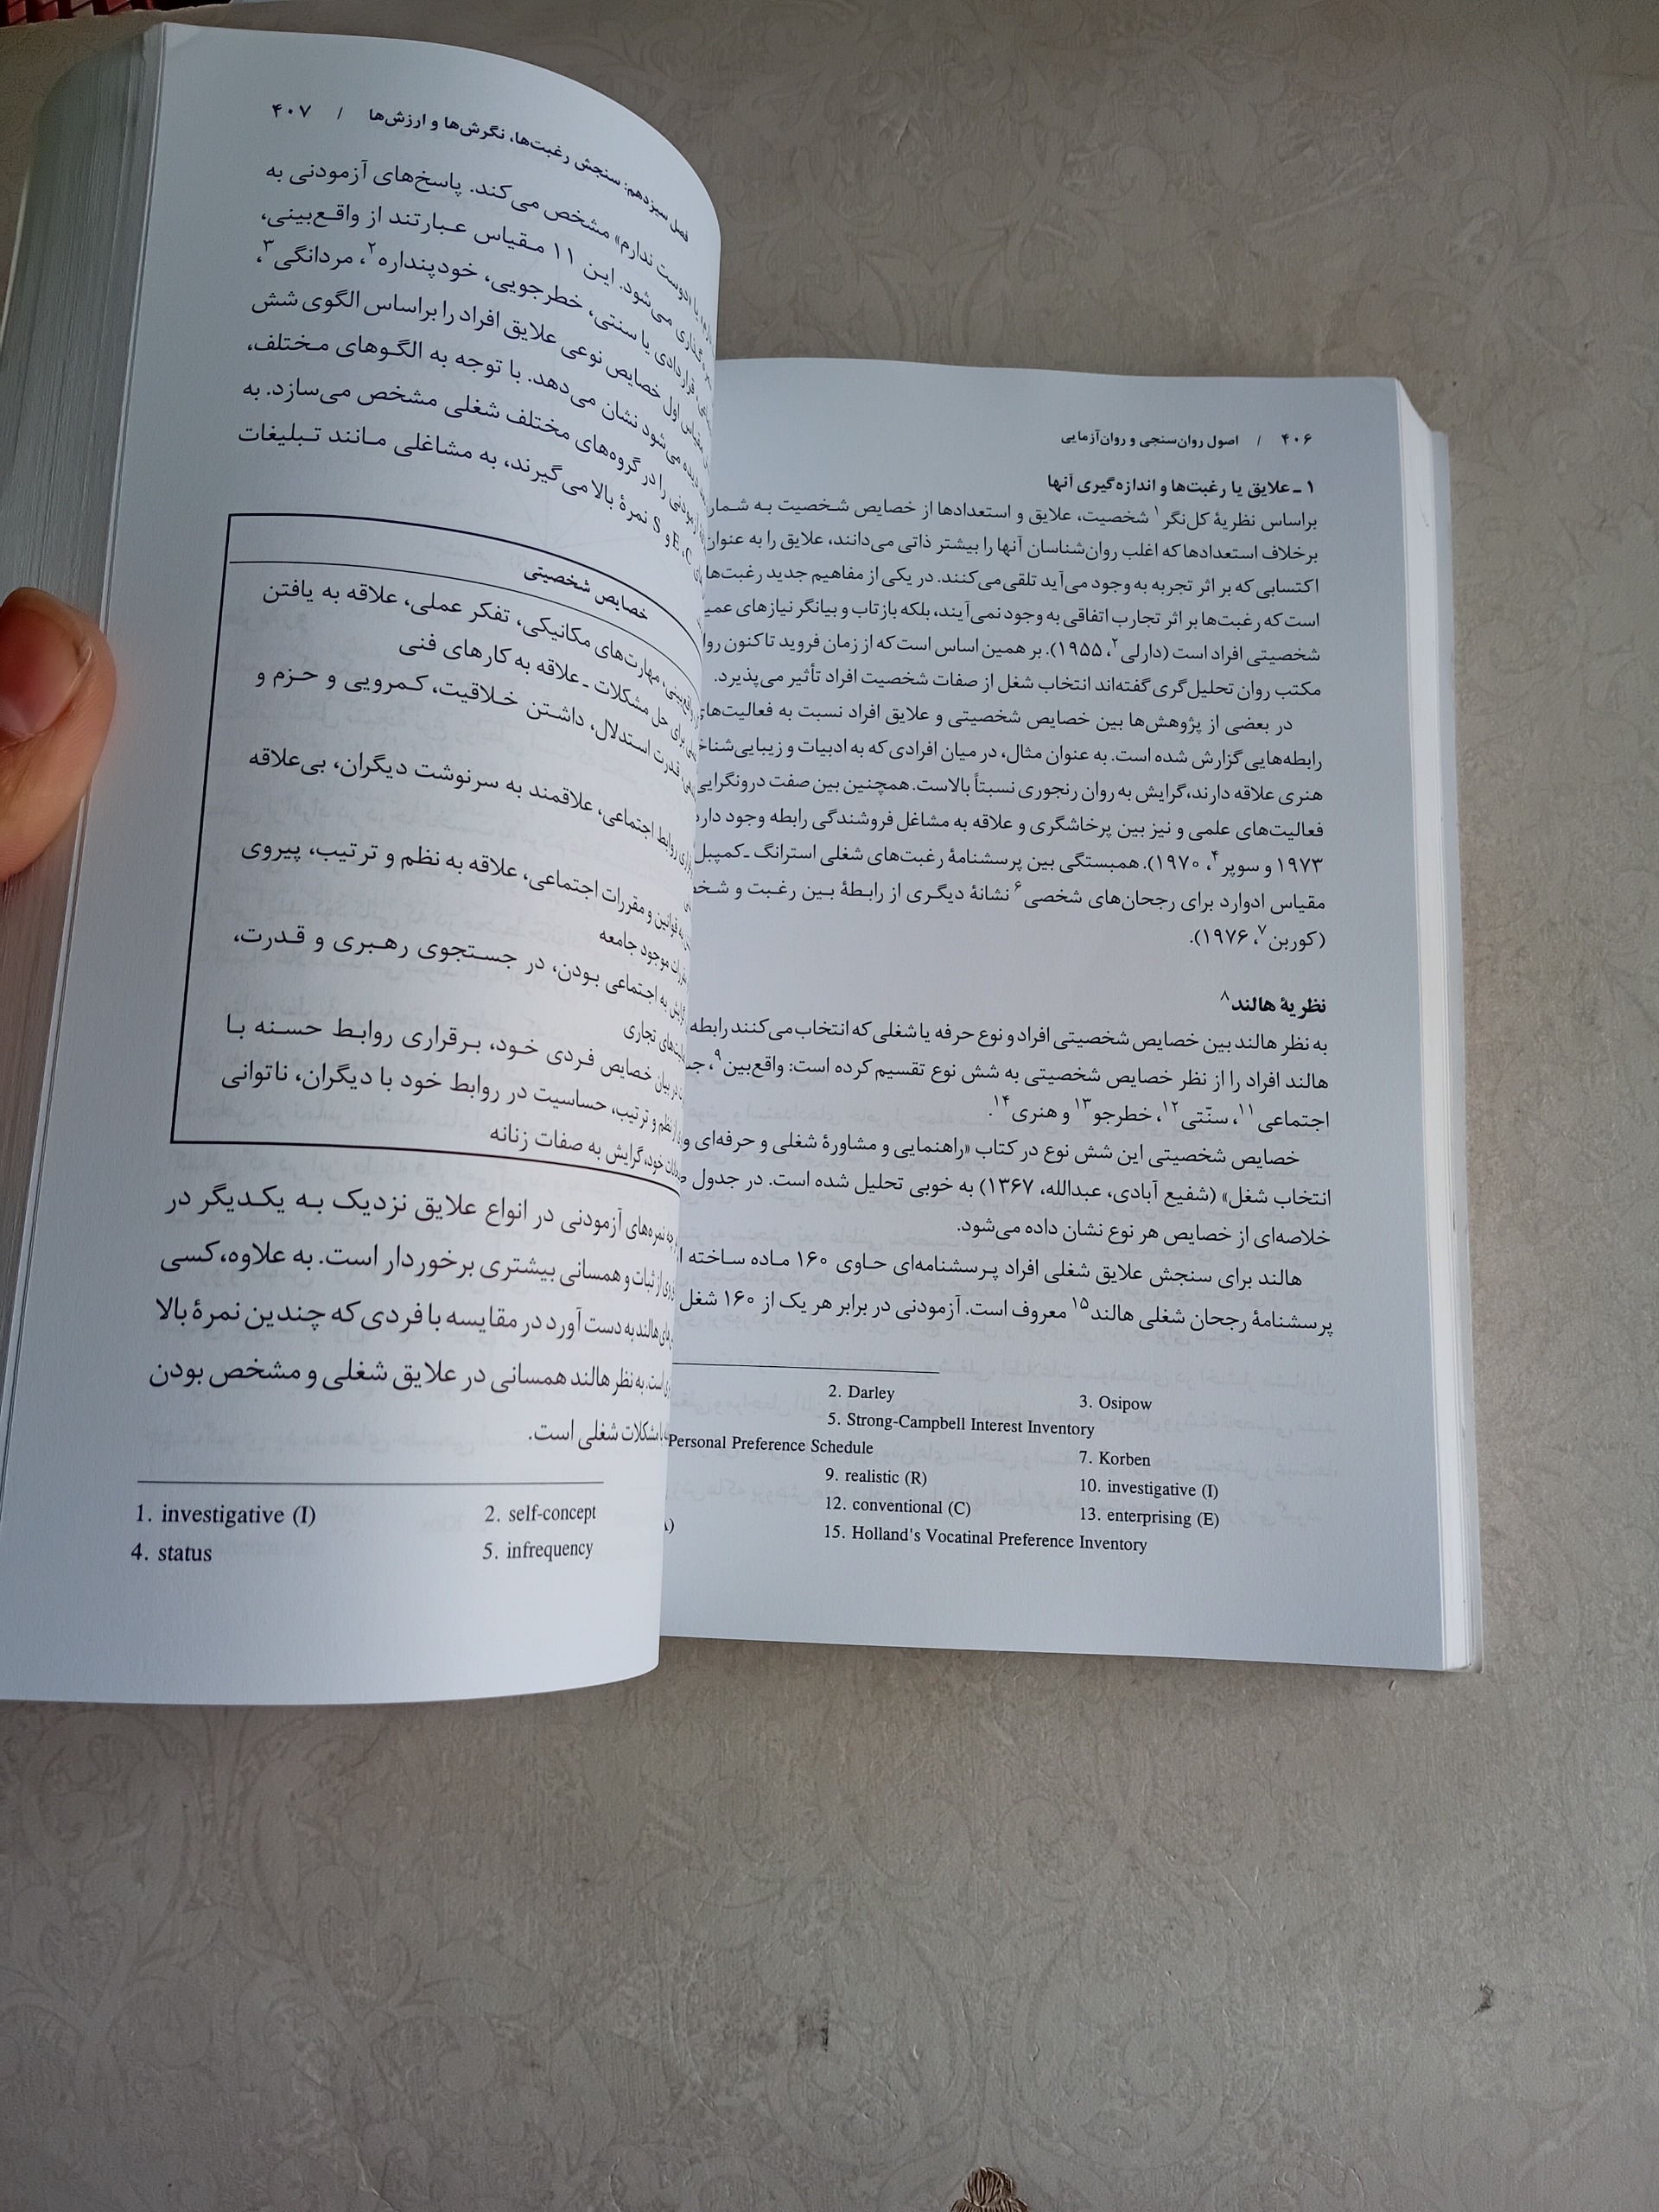 ۴۰۶ / اصول روان‌سنجی و روان‌آزمایی
۱ ـ علایق یا رغبت‌ها و اندازه‌گیری آنها
براساس نظریهٔ کل‌نگر۱ شخصیت، علایق و استعدادها از خصایص شخصیت به شمار
برخلاف استعدادها که اغلب روان‌شناسان آنها را بیشتر ذاتی می‌دانند، علایق را به عنوان
اکتسابی که بر اثر تجربه به وجود می‌آید تلقی می‌کنند. در یکی از مفاهیم جدید رغبت‌ها
است که رغبت‌ها بر اثر تجارب اتفاقی به وجود نمی‌آیند، بلکه بازتاب و بیانگر نیازهای
شخصیتی افراد است (دارلی۲، ۱۹۵۵). بر همین اساس است که از زمان فروید تاکنون
مکتب روان تحلیل‌گری گفته‌اند انتخاب شغل از صفات شخصیت افراد تأثیر می‌پذیرد.
در بعضی از پژوهش‌ها بین خصایص شخصیتی و علایق افراد نسبت به
رابطه‌هایی گزارش شده است. به عنوان مثال، در میان افرادی که به ادبیات و
هنری علاقه دارند، گرایش به روان رنجوری نسبتاً بالاست. همچنین بین صفت درونگرایی
فعالیت‌های علمی و نیز بین پرخاشگری و علاقه به مشاغل فروشندگی رابطه وجود
۱۹۷۳ و سوپر۴، ۱۹۷۰). همبستگی بین پرسشنامهٔ رغبت‌های شغلی استرانگ ـ کمپبل
مقیاس ادوارد برای رجحان‌های شخصی۶ نشانهٔ دیگری از رابطهٔ بین رغبت و
(کوربن۷، ۱۹۷۶).
نظریهٔ هالند۸
به نظر هالند بین خصایص شخصیتی افراد و نوع حرفه یا شغلی که انتخاب می‌کنند رابطه
هالند افراد را از نظر خصایص شخصیتی به شش نوع تقسیم کرده است: واقع‌بین۹،
اجتماعی۱۱، سنّتی۱۲، خطرجو۱۳ و هنری۱۴.
خصایص شخصیتی این شش نوع در کتاب «راهنمایی و مشاورهٔ شغلی و حرفه‌ای و
انتخاب شغل» (شفیع آبادی، عبدالله، ۱۳۶۷) به خوبی تحلیل شده است. در جدول
خلاصه‌ای از خصایص هر نوع نشان داده می‌شود.
هالند برای سنجش علایق شغلی افراد پرسشنامه‌ای حاوی ۱۶۰ ماده ساخته
پرسشنامهٔ رجحان شغلی هالند۱۵ معروف است. آزمودنی در برابر هر یک از ۱۶۰ شغل
2. Darley 3. Osipow
5. Strong-Campbell Interest Inventory
Personal Preference Schedule 7. Korben
9. realistic (R) 10. investigative (I)
12. conventional (C) 13. enterprising (E)
15. Holland's Vocatinal Preference Inventory
فصل سیزدهم: سنجش رغبت‌ها، نگرش‌ها و ارزش‌ها / ۴۰۷
«دوست ندارم» مشخص می‌کند. پاسخ‌های آزمودنی به
می‌شود. این ۱۱ مقیاس عبارتند از واقع‌بینی،
قراردادی یا سنتی، خطرجویی، خودپنداره۲، مردانگی۳،
اول خصایص نوعی علایق افراد را براساس الگوی شش
می‌شود نشان می‌دهد. با توجه به الگوهای مختلف،
را در گروه‌های مختلف شغلی مشخص می‌سازد. به
C، E و S نمرهٔ بالا می‌گیرند، به مشاغلی مانند تبلیغات
خصایص شخصیتی
مهارت‌های مکانیکی، تفکر عملی، علاقه به یافتن
برای حل مشکلات ـ علاقه به کارهای فنی
قدرت استدلال، داشتن خلاقیت، کمرویی و حزم و
روابط اجتماعی، علاقمند به سرنوشت دیگران، بی‌علاقه
به قوانین و مقررات اجتماعی، علاقه به نظم و ترتیب، پیروی
موجود جامعه
به اجتماعی بودن، در جستجوی رهبری و قدرت،
تجاری
در بیان خصایص فردی خود، برقراری روابط حسنه با
نظم و ترتیب، حساسیت در روابط خود با دیگران، ناتوانی
خود، گرایش به صفات زنانه
نمره‌های آزمودنی در انواع علایق نزدیک به یکدیگر در
از ثبات و همسانی بیشتری برخوردار است. به علاوه، کسی
هالند به دست آورد در مقایسه با فردی که چندین نمرهٔ بالا
است. به نظر هالند همسانی در علایق شغلی و مشخص بودن
مشکلات شغلی است.
1. investigative (I) 2. self-concept
4. status 5. infrequency